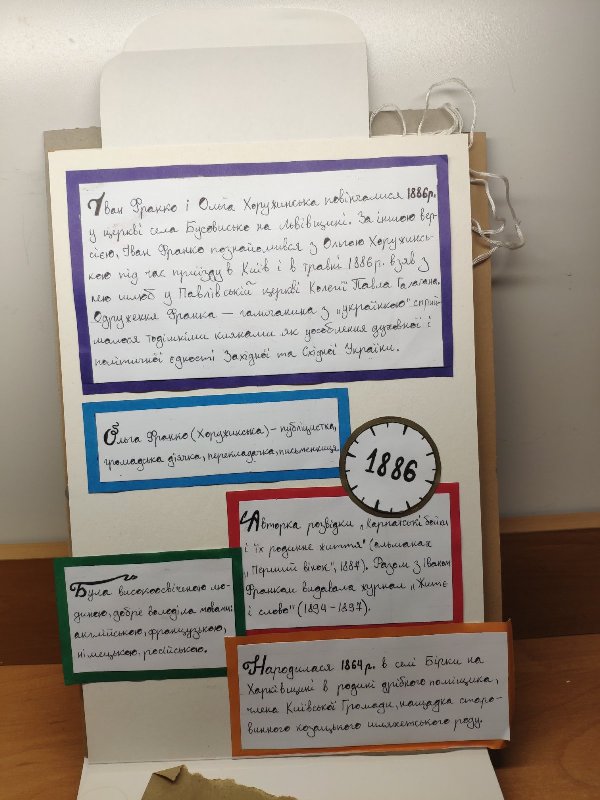 Іван Франко і Ольга Хоружинська повінчалися 1886р.
у церкві села Бусовисько на Львівщині. За іншою вер-
сією, Іван Франко познайомився з Ольгою Хоружинсь-
кою під час приїзду в Київ і в травні 1886р. взяв з
нею шлюб у Павлівській церкві Колегії Павла Галагана.
Одруження Франка – галичанина з „українкою" сприй-
малося тодішніми киянами як уособлення духовної і
політичної єдності Західної та Східної України.
Ольга Франко (Хоружинська) – публіцистка,
громадська діячка, перекладачка, письменниця
1886
Авторка розвідки „Карпатські бойки
і їх родинне життя" (альманах
„Перший вінок", 1887). Разом з Іваном
Франком видавала журнал „Житє
і слово" (1894-1897).
Була високоосвіченою лю-
диною, добре володіла мовами:
англійською, французькою,
німецькою, російською.
Народилася 1864р. в селі Бірки на
Харківщині в родині дрібного поміщика,
члена Київської Громади, нащадка старо-
винного козацького шляхетського роду